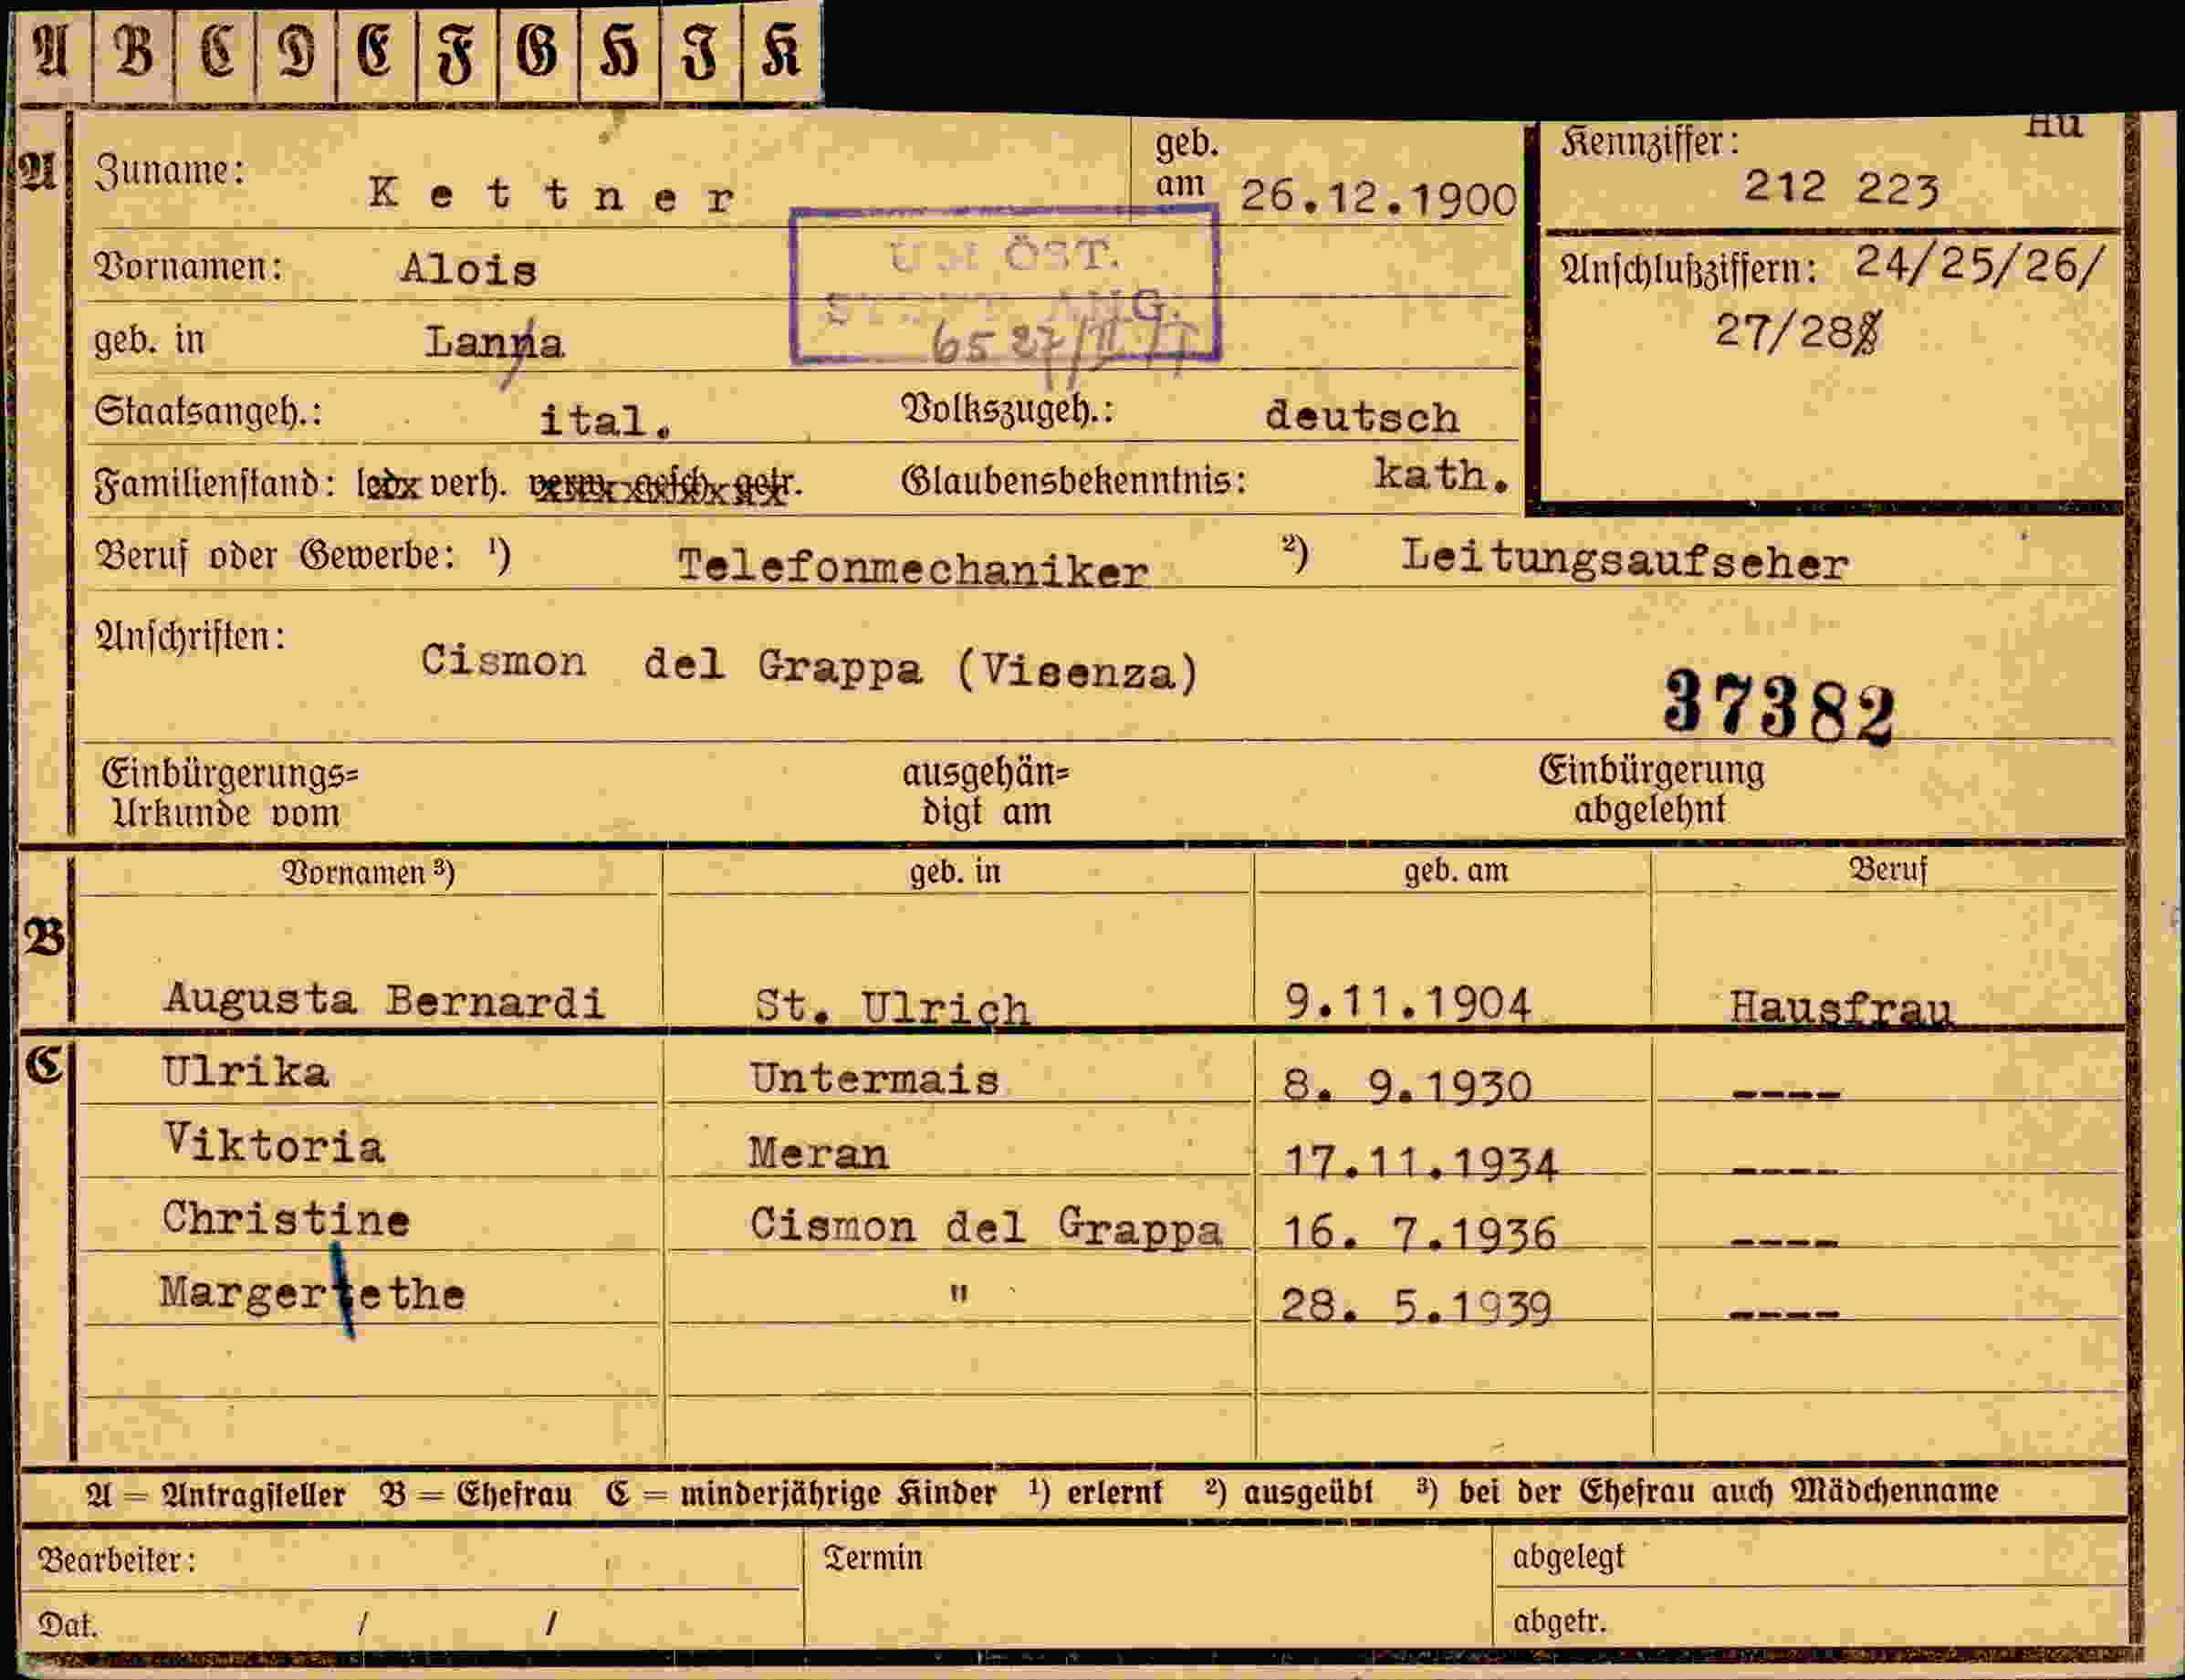 A B C D E F G H I K
A Zuname: Kettner geb. am 26.12.1900
Kennziffer: 212 223
Vornamen: Alois
ÖST.
Anschlußziffern: 24/25/26/
27/28
geb. in Lana
Staatsangeh.: ital. Volkszugeh.: deutsch
Familienstand: verh. Glaubensbekenntnis: kath.
Beruf oder Gewerbe: ¹) Telefonmechaniker ²) Leitungsaufseher
Anschriften: Cismon del Grappa (Visenza)
37382
Einbürgerungs= ausgehän= Einbürgerung
Urkunde vom digt am abgelehnt
Vornamen ³) geb. in geb. am Beruf
B Augusta Bernardi St. Ulrich 9.11.1904 Hausfrau
C Ulrika Untermais 8. 9.1930 ----
Viktoria Meran 17.11.1934 ----
Christine Cismon del Grappa 16. 7.1936 ----
Margerethe " 28. 5.1939 ----
A = Antragsteller B = Ehefrau C = minderjährige Kinder ¹) erlernt ²) ausgeübt ³) bei der Ehefrau auch Mädchenname
Bearbeiter: Termin abgelegt
Dat. / / abgetr.